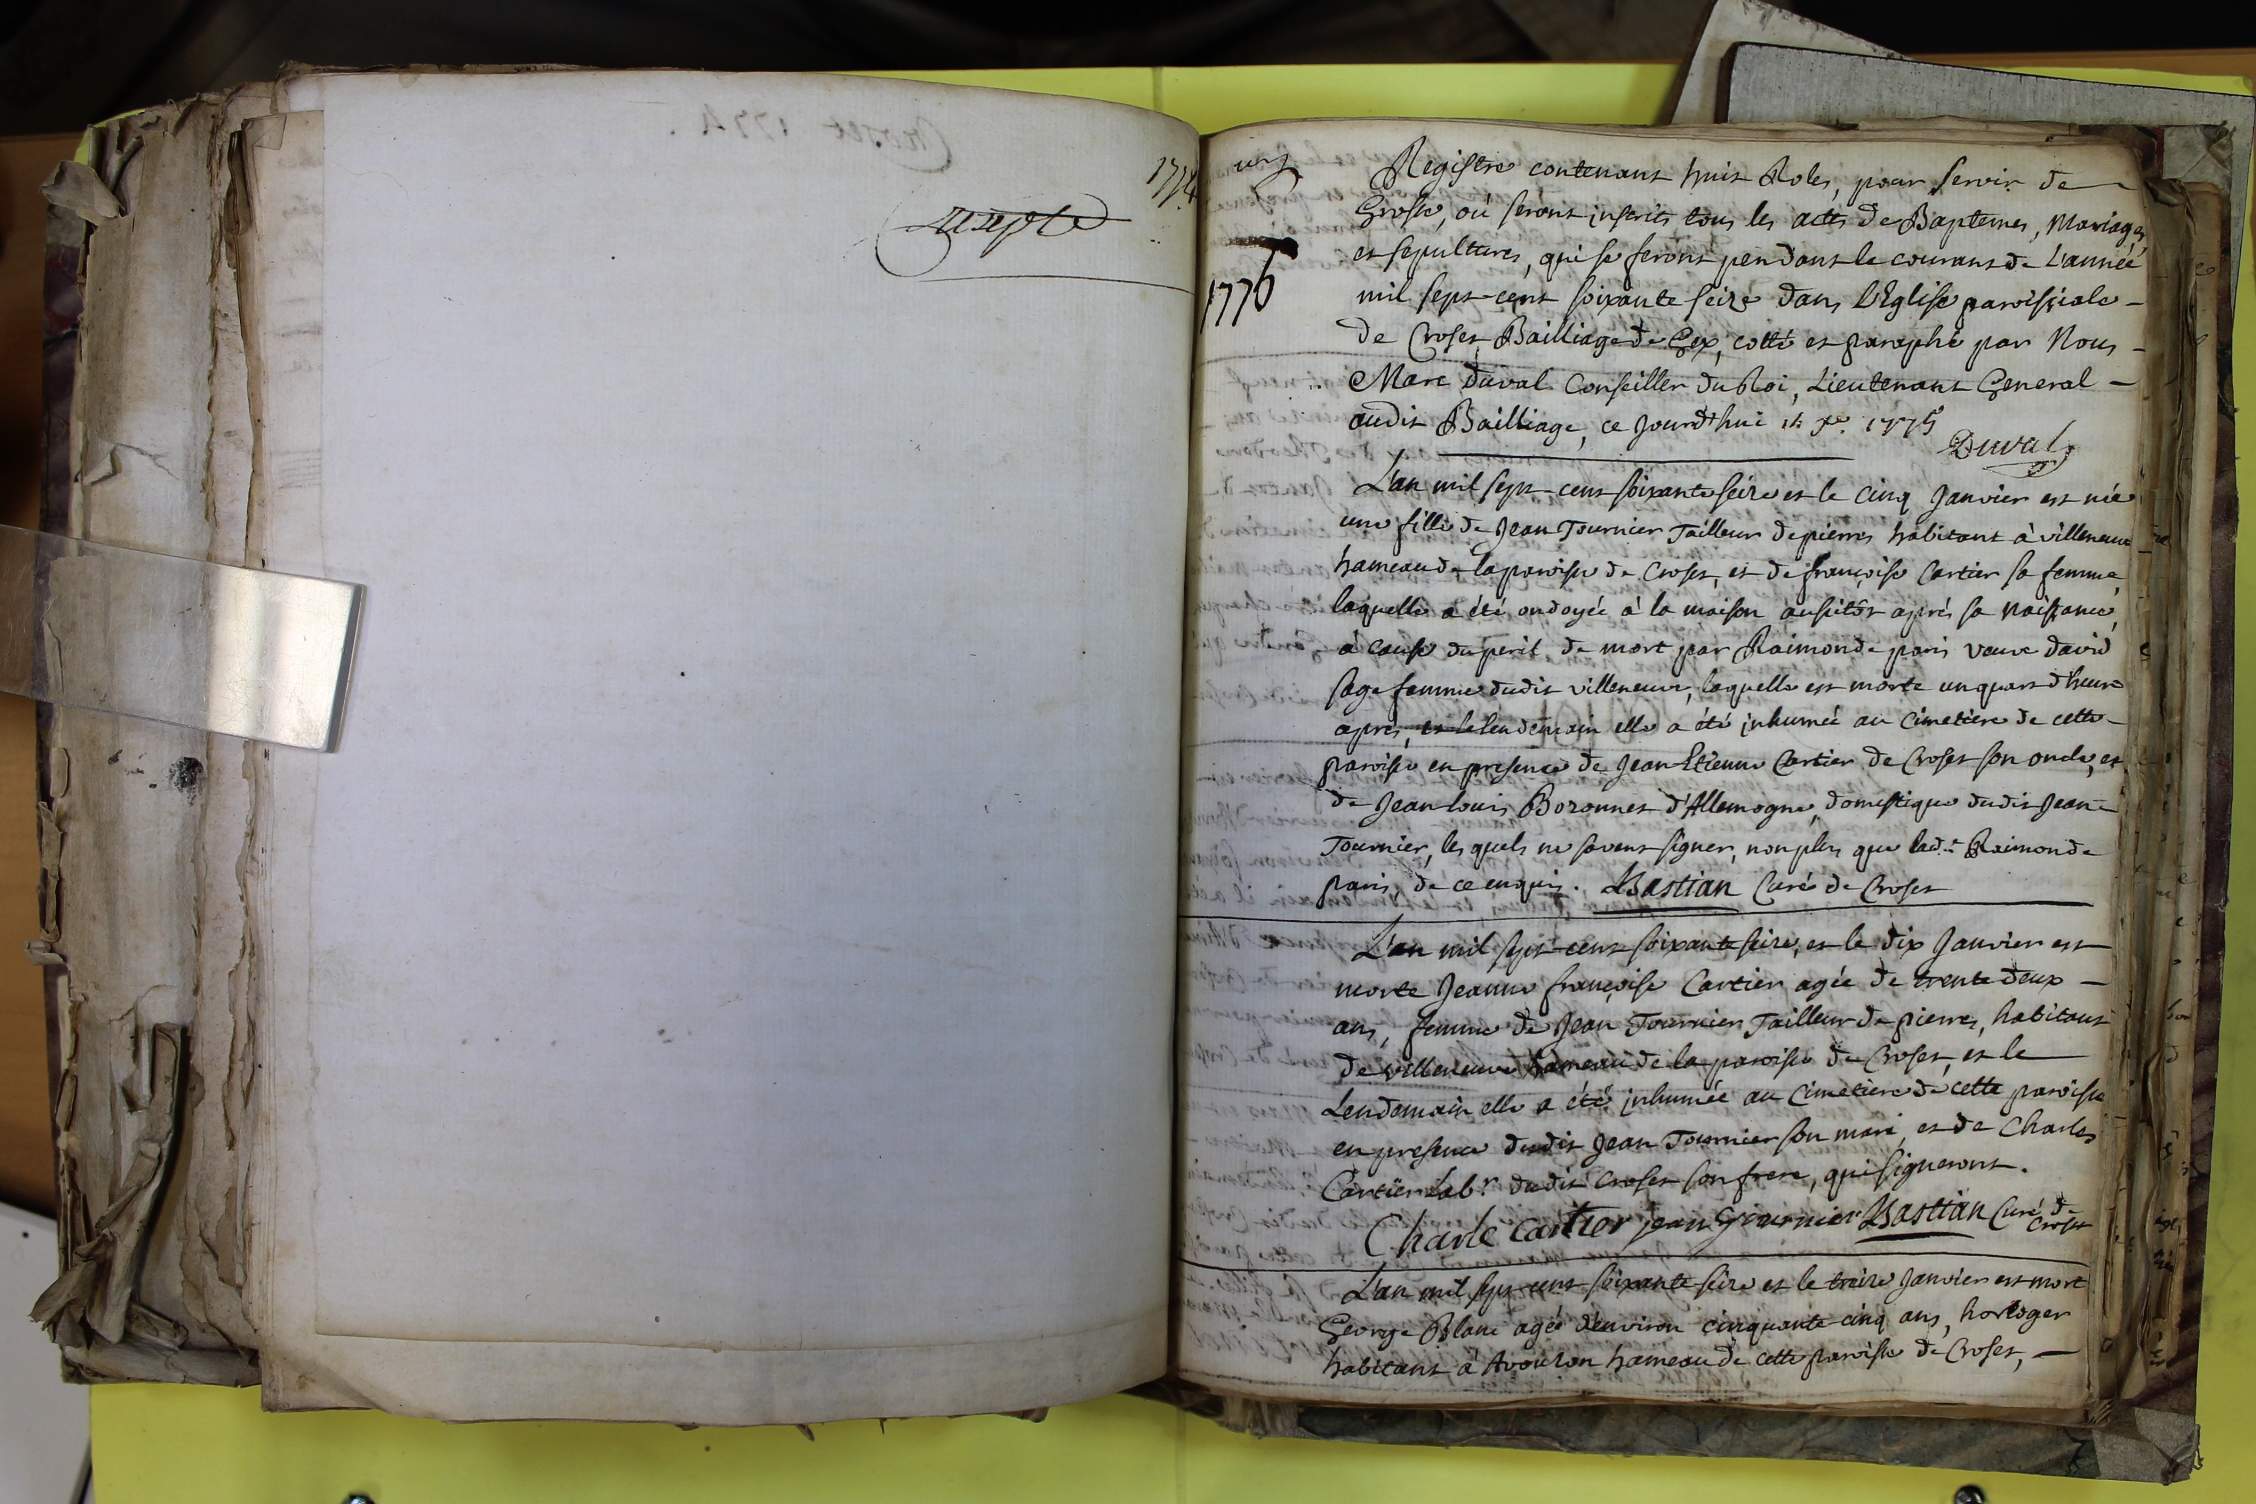 Croset 1774.
1774
un
1776
Registre contenant huit Roles, pour servir de
Grosse, où seront inscrits tous les actes de Baptemes, Mariages,
et sepultures, qui se feront pendant le courant de L'année
mil sept-cent soixante seize dans L'Eglise paroissiale -
de Croset, Bailliage de Gex, cotté et paraphé par Nous -
Marc Duval Conseiller du Roi, Lieutenant General -
audit Bailliage, ce jourd'hui 1775
Duval
L'an mil sept-cent soixante seize et le cinq Janvier est née
une fille de Jean Tournier Tailleur de pierres habitant à villeneuve
hameau de la paroisse de Croset, et de françoise Cartier sa femme,
laquelle a été ondoyée à la maison ausitôt après sa Naissance,
à cause du peril de mort par Raimonde paris veuve David
sage femme dudit villeneuve, laquelle est morte un quart d'heure
après, et le lendemain elle a été inhumée au Cimetiere de cette -
paroisse en presence de Jean-Etienne Cartier de Croset son oncle, et
de Jean Louis Bozonnet d'Allemogne, domestique dudit Jean -
Tournier, les quels ne savent signer, non plus que lad.te Raimonde
paris, de ce enquis. Bastian Curé de Croset
L'an mil sept-cent soixante seize, et le dix Janvier est
morte Jeanne françoise Cartier agée de trente deux -
ans, femme de Jean Tournier Tailleur de pierres, habitant
de villeneuve hameau de la paroisse de Croset, et le
Lendemain elle a été inhumée au Cimetiere de cette paroisse
en presence dudit Jean Tournier son mari, et de Charles
Cartier Lab.r dudit Croset son frere, qui signeront.
Charle cartier jean Tournier Bastian Curé de
Croset
L'an mil sept-cent soixante seize et le treize Janvier est mort
George Blanc agé d'environ cinquante cinq ans, horloger
habitant à Avouson hameau de cette paroisse de Croset, -